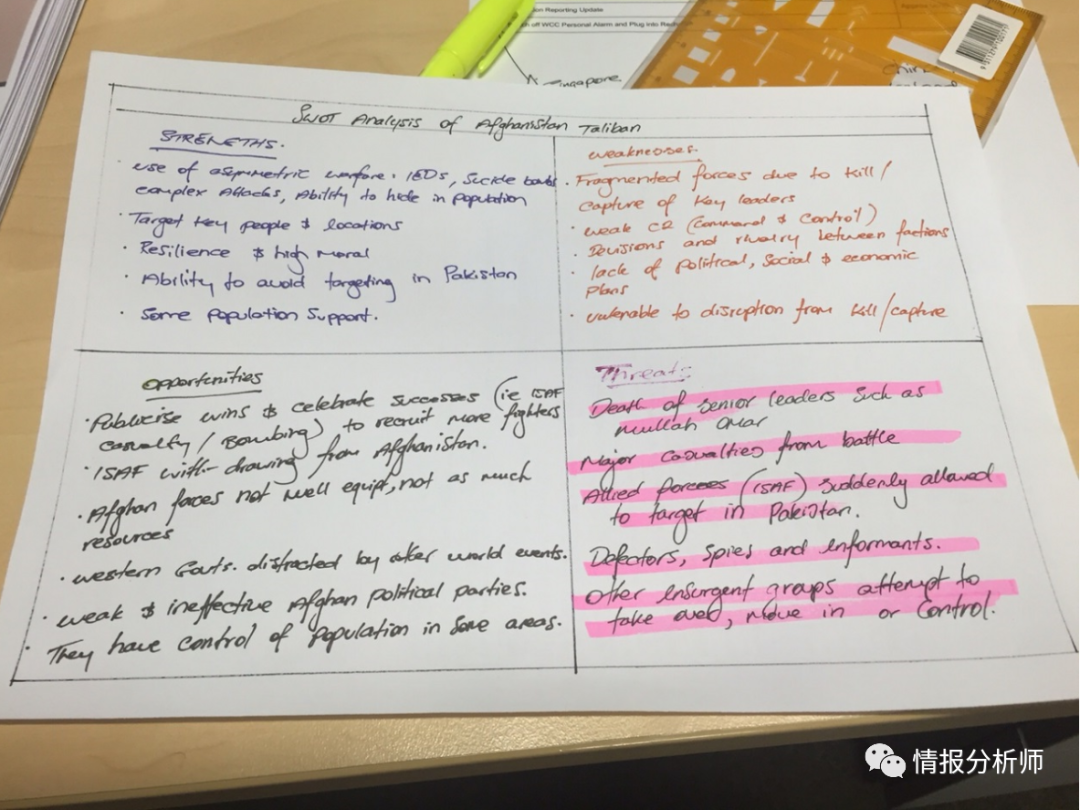 ion Reporting Update
off WCC Personal Alarm and Plug into
Singapore
SWOT Analysis of Afghanistan Taliban
STRENGTHS.
· use of asymmetric warfare. IEDs, Suicide
complex Attacks, Ability to hide in population
· Target key people & locations
· Resilience & high moral
· Ability to avoid targeting in Pakistan
· Some population Support.
weaknesses.
· Fragmented forces due to kill/
capture of key leaders
· weak C2 (Command & Control)
· Divisions and rivalry between factions
· lack of Political, Social & economic
plans
· vulenable to disruption from kill/capture
Opportunities
· Publicise wins & celebrate successes (ie ISAF
casualty / Bombing) to recruit more fighters
· ISAF with-drawing from Afghanistan.
· Afghan forces not well equipt, not as much
resources
· western Govts. distracted by other world events.
· weak & ineffective Afghan political parties.
· They have control of population in some areas.
Threats
Death of senior leaders such as
mullah Omar
Major casualties from battle
Allied forces (ISAF) suddenly allowed
to target in Pakistan.
Defectors, spies and informants.
Other insurgent groups attempt to
take over, move in or control.
情报分析师